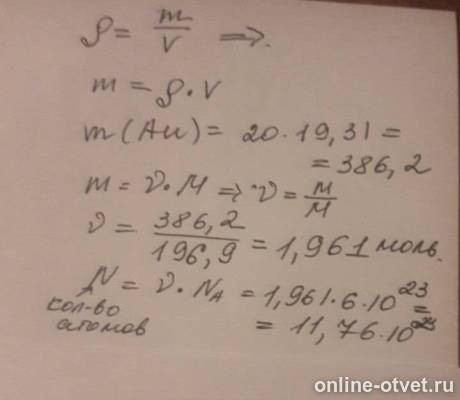 ρ = m/V ⇒.
m = ρ · V
m(Au) = 20 · 19,31 =
= 386,2
m = ν · M ⇒ ν = м/M
ν = 386,2/196,9 = 1,961 моль.
N = ν · N_A = 1,961 · 6 · 10^23 =
кол-во
атомов
= 11,76 · 10^23
online-otvet.ru